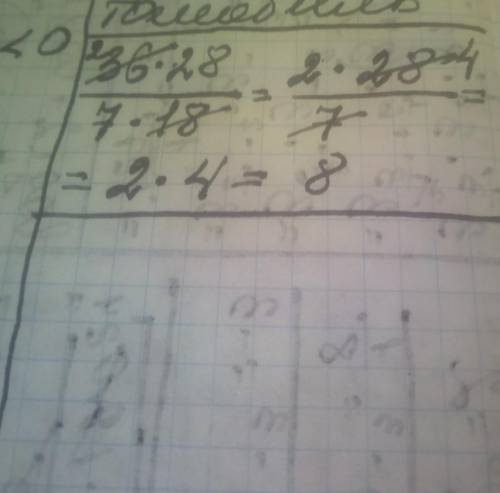 <0
2
36·28 / 7·18 = 2·28 4 / 7 =
= 2·4 = 8